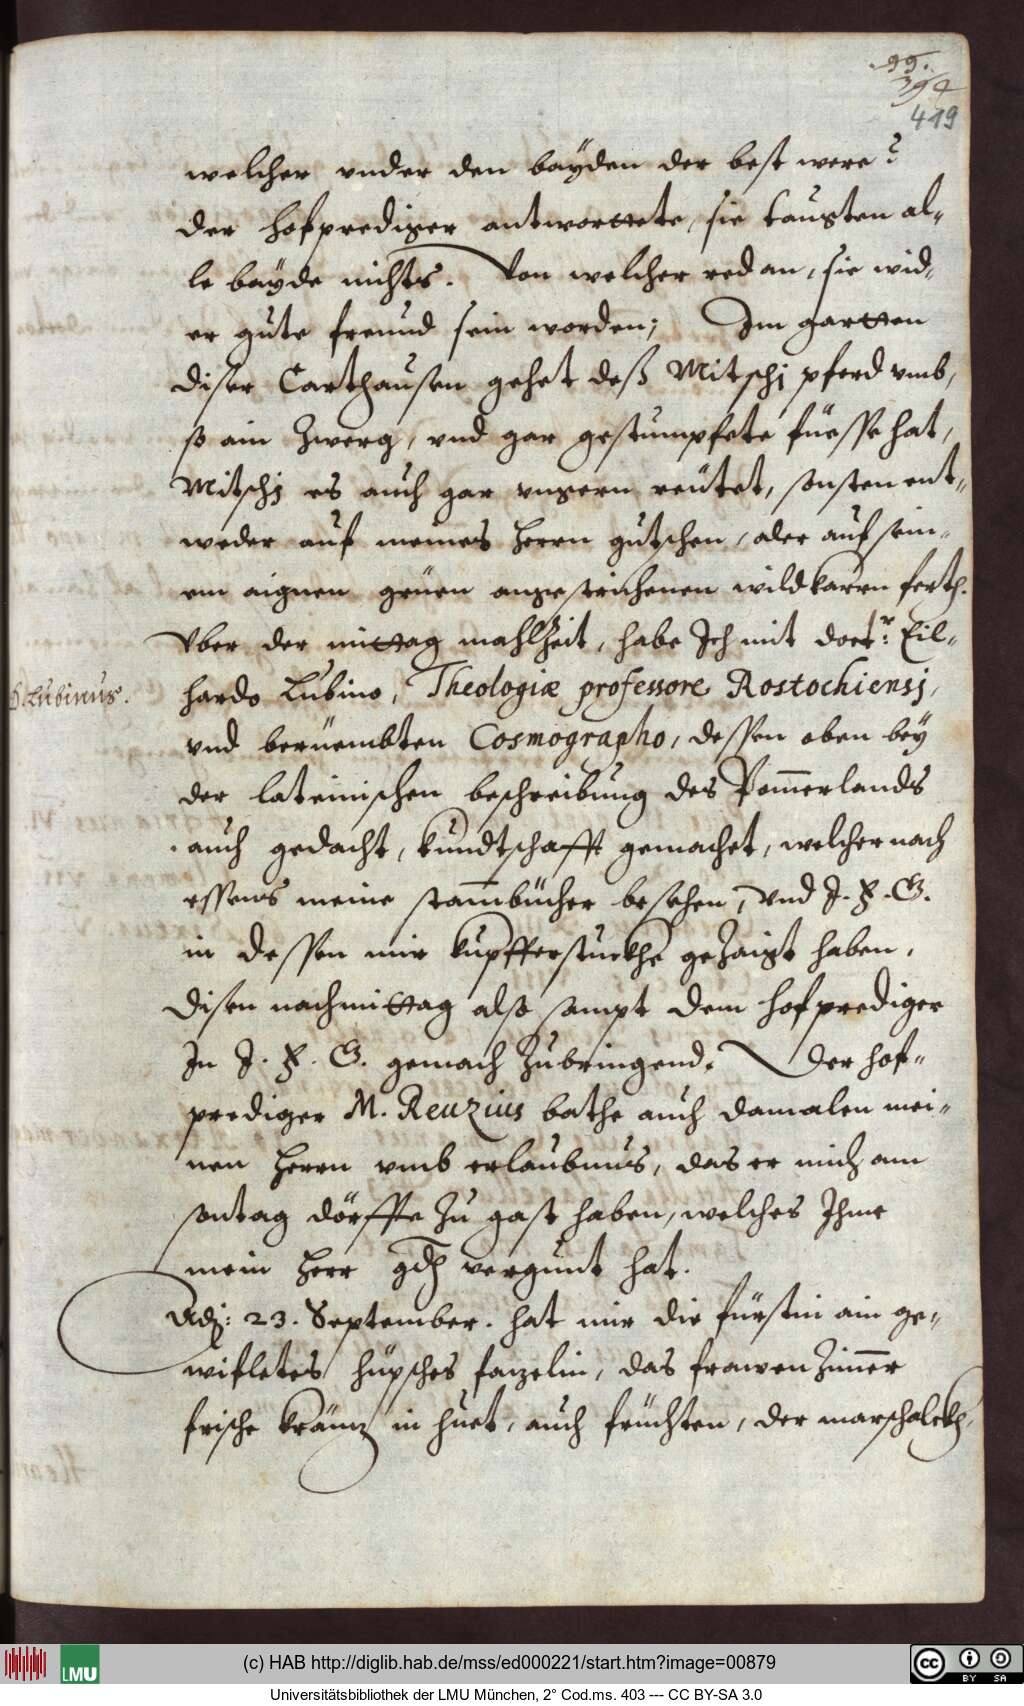 99.
394
419
welcher vnder den bayden der best were?
der hofprediger antworttete, sie taugten al-
le bayde nichts. Von welcher red an, sie wid-
er gute freund sein worden; Im gartten
diser Carthausen gehet deß Mitschj pferd vmb,
so ain Zwerg, vnd gar gestumpfete füesse hat,
Mitschj es auch gar vngern reütet, sonsten ent-
weder auf meines herrn gutschen, oder auf sein-
em aignen grüen angestrichenen wildkarrn ferth.
Vber der mittag mahlZeit, habe Ich mit doctr: Eil-
hardo Lubino, Theologiæ professore Rostochiensj,
D. Lubinus.
vnd berüembten Cosmographo, dessen oben bey
der lateinischen beschreibung des Pom̅erlands
auch gedacht, kundtschafft gemachet, welcher nach
essens meine stam̅bücher besehen, Vnd J. F. G.
in dessen mir kupfferstuckhe geZaigt haben.
Disen nachmittag also sampt dem hofprediger
In J. F. G. gemach Zubringend. Der hof-
prediger M. Reuzius bathe auch damalen mei-
nen herrn vmb erlaubnus, das er mich am
sontag dörffte Zu gast haben, welches Ihme
mein herr gdh vergunt hat.
Adj: 23. September. hat mir die fürstin ain ge-
wifletes hüpsches fazelin, das frawenZim̅er
frische kränz in huet, auch früchten, der marschalckh
(c) HAB http://diglib.hab.de/mss/ed000221/start.htm?image=00879
LMU
cc BY SA
Universitätsbibliothek der LMU München, 2° Cod.ms. 403 --- CC BY-SA 3.0